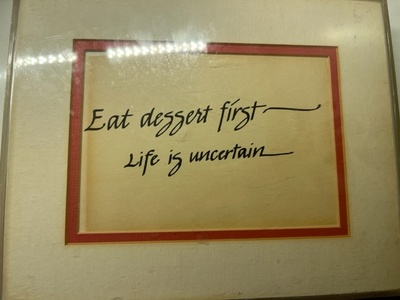 Eat dessert first
Life is uncertain